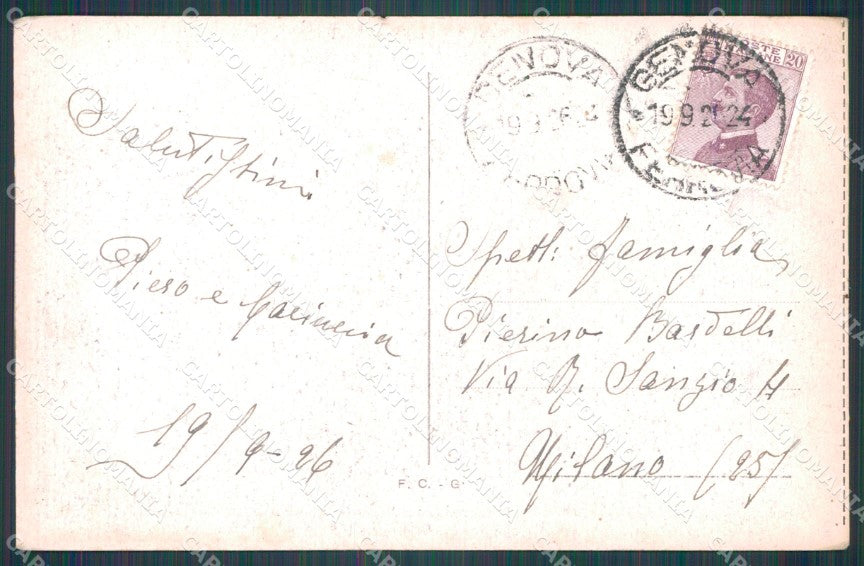 Saluti Stini
Piero e
19/9-26
F. C. - G.
GENOVA
19.9.26.24
FERROVIA
GENOVA
19.9.26.24
FERROVIA
POSTE
20
Spett: famiglia
Pierino Bardelli
Via R. Sanzio 4
Milano (25)
CARTOLINOMANIA